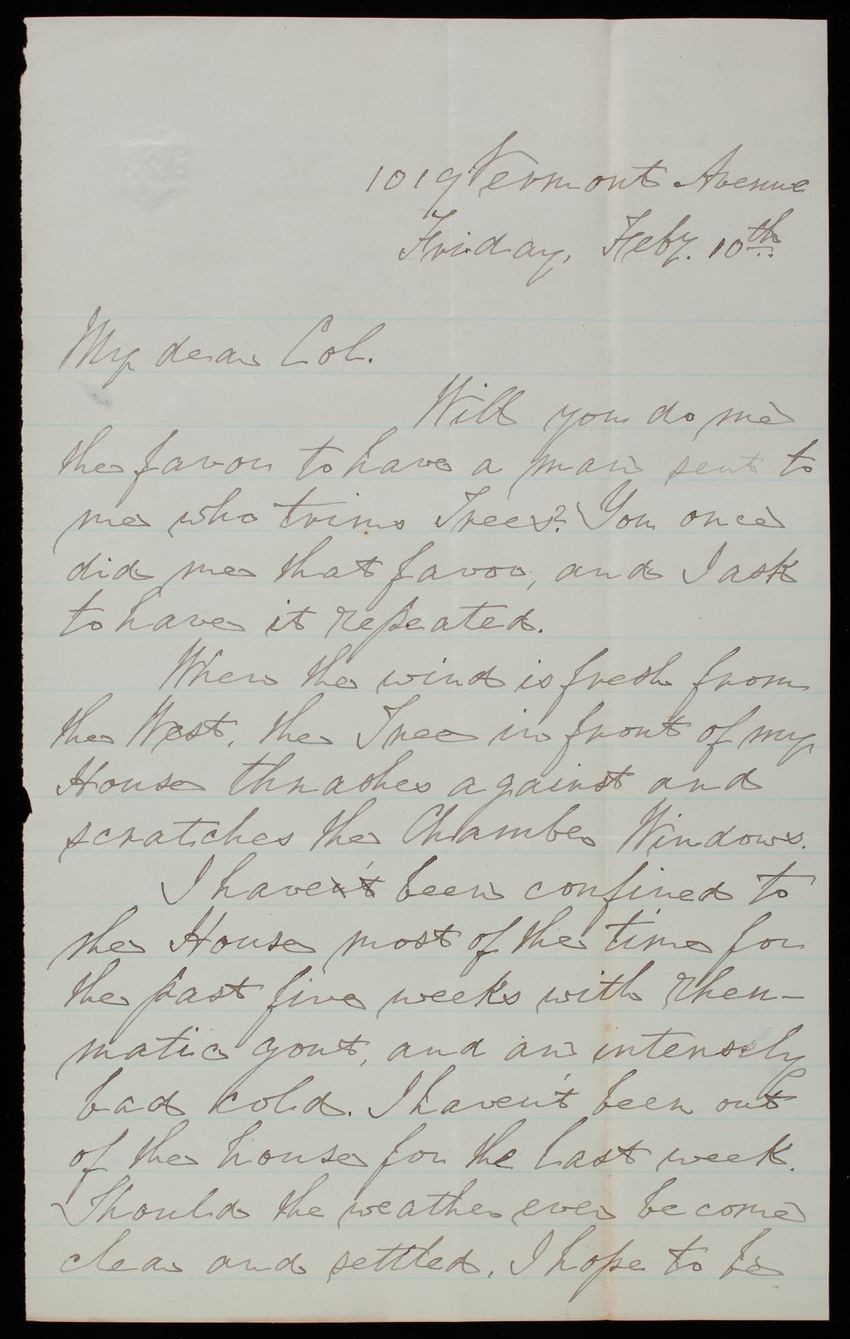 1019 Vermont Avenue
Friday, Feby. 10th
My dear Col.
Will you do me
the favor to have a man sent to
me who trims Trees? You once
did me that favor, and I ask
to have it repeated.
When the wind is fresh from
the West, the Tree in front of my
House thrashes against and
scratches the Chamber Windows.
I haven't been confined to
the House most of the time for
the past five weeks with Rheu-
matic gout, and an intensely
bad cold. I haven't been out
of the house for the last week.
Should the weather ever become
clear and settled, I hope to be